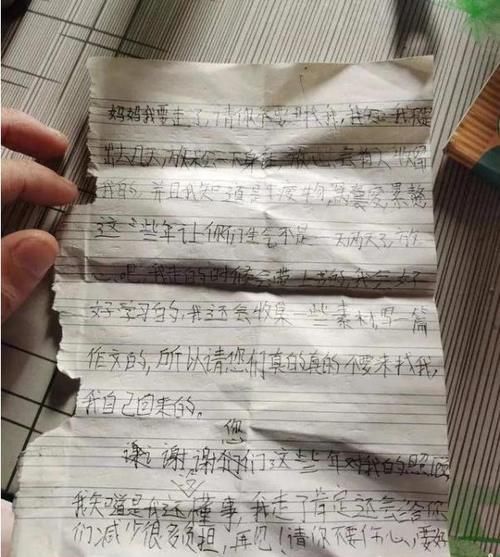 妈妈我要走了,请你不要找我,我只是
出去几天,放松一下身心,会有人收留
我的,并且我知道是
这些年让你们生气不是一两天了,放
心吧我走的时候会带上书的,我会好
好学习的,我还会收集一些素材,写一篇
作文的,所以请您们真的真的不要来找我,
我自己回来的。
您
谢谢谢你们们这些年对我的照顾
我知道是我还懂事,我走了肯定还会给你
们减少很多负担,再见!请你不要伤心,要好